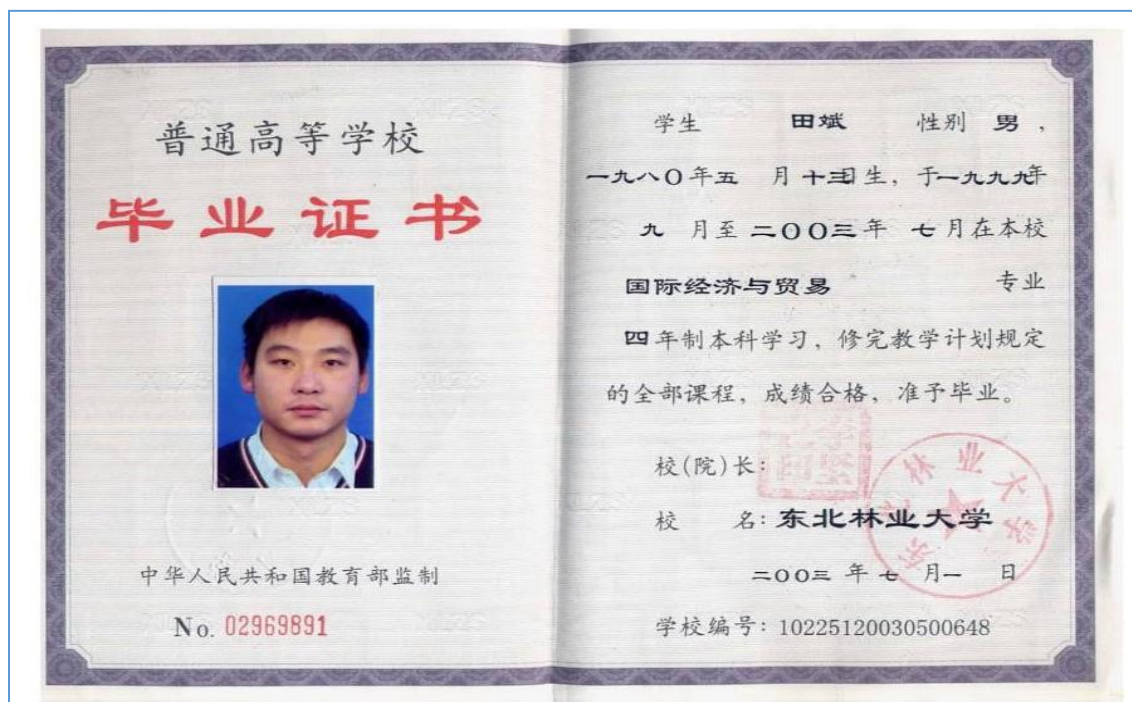 普通高等学校
毕业证书
中华人民共和国教育部监制
No. 02969891
学生 田斌 性别 男,
一九八〇年五 月十三日生, 于一九九九年
九 月至二〇〇三年 七月在本校
国际经济与贸易 专业
四年制本科学习, 修完教学计划规定
的全部课程, 成绩合格, 准予毕业。
校(院)长:
李坚
校 名: 东北林业大学
东北林业大学
二〇〇三 年七 月一 日
学校编号: 10225120030500648